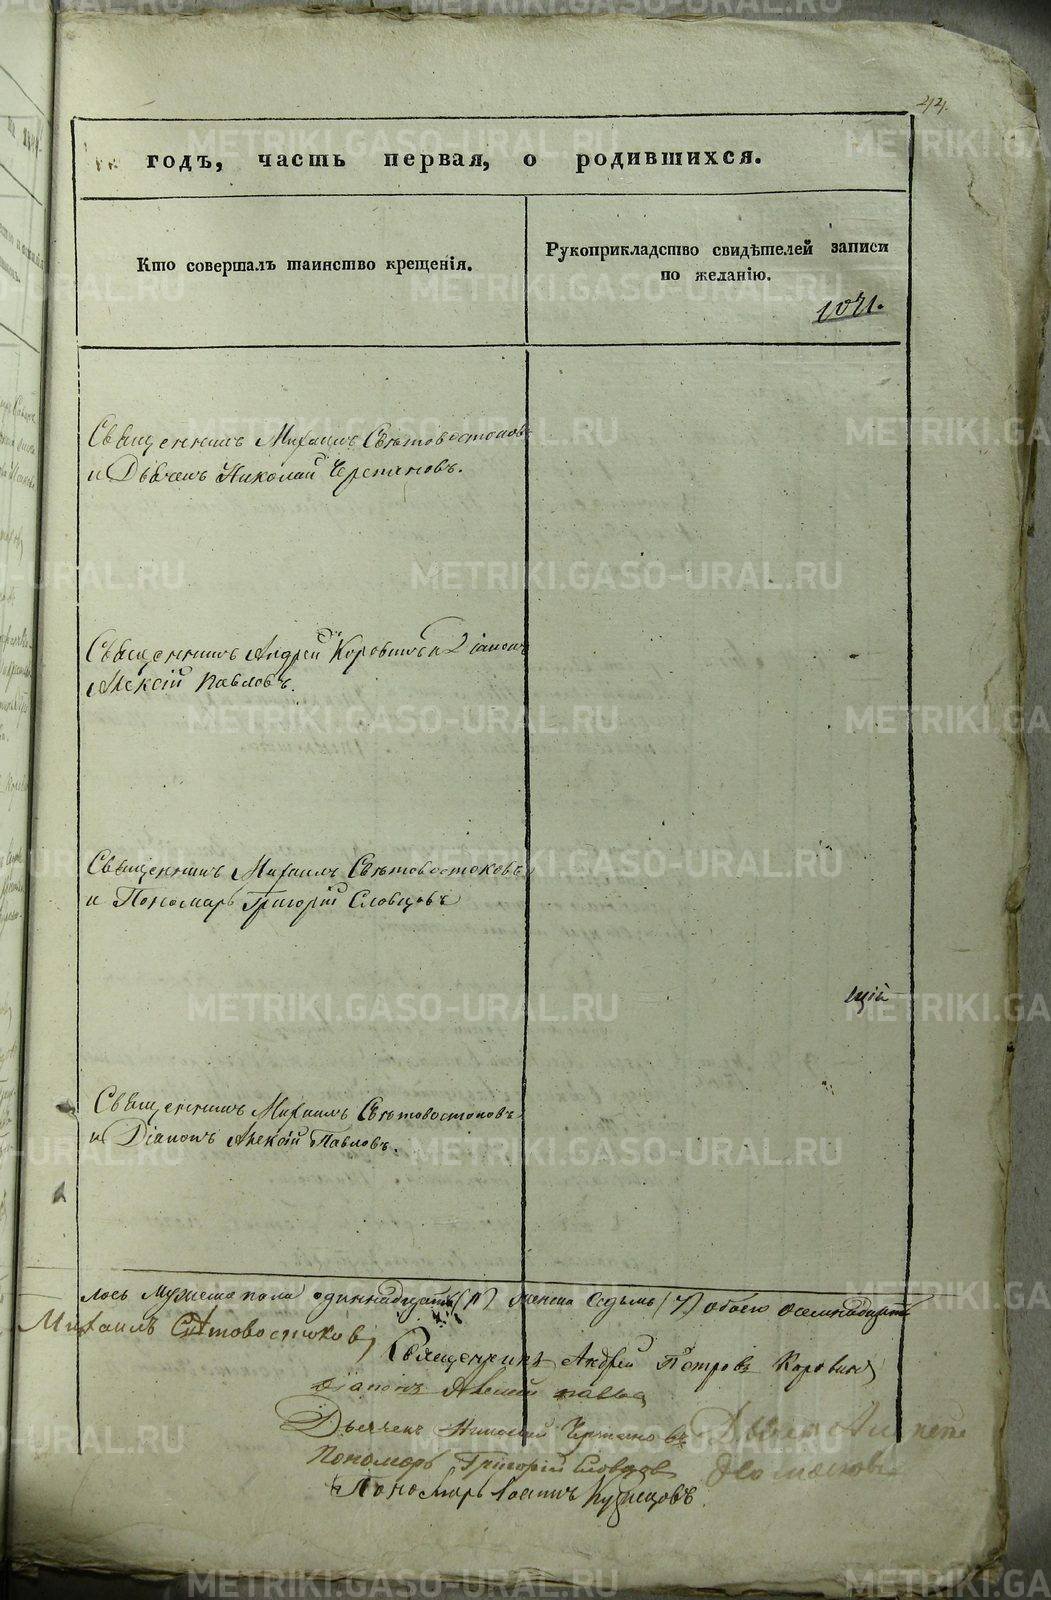 44.
годъ, часть первая, о родившихся.
Кто совершалъ таинство крещенія.
Рукоприкладство свидѣтелей записи
по желанію.
1071.
Священникъ Михаилъ Свѣтовостоковъ
и Дьячекъ Николай Черепановъ.
Священникъ Андрей Коровинъ и Діаконъ
Алексій Павловъ.
Священникъ Михаилъ Свѣтовостоковъ
и Пономарь Григорій Словцовъ
щій
Священникъ Михаилъ Свѣтовостоковъ
и Діаконъ Алексій Павловъ.
лось мужеска пола одиннадцать (11) женска седьмь (7) обоего осемнадцать
Михаилъ Свѣтовостоковъ
Священникъ Андрей Петровъ Коровинъ
Діаконъ Алексій Павловъ
Дьячекъ Николай Черепановъ
Дьячекъ
Пономарь Григорій Словцовъ
Пономарь Іоаннъ Кузнецовъ.
METRIKI.GASO-URAL.RU